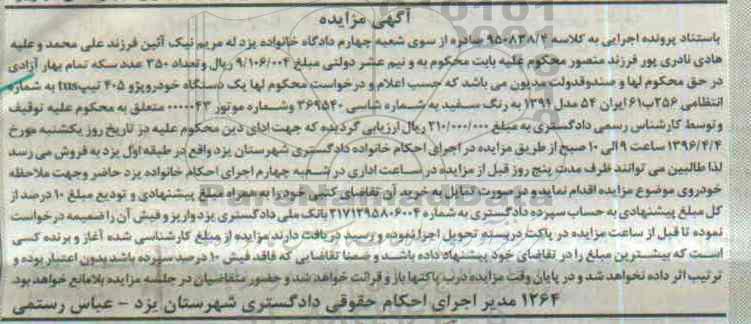 آگهی مزایده
باستناد پرونده اجرایی به کلاسه ۹۵۰۸۳۸/۴ صادره از سوی شعبه چهارم دادگاه خانواده یزد له مریم نیک آئین فرزند علی محمد و علیه
هادی نادری پور فرزند منصور محکوم علیه بابت محکوم به و نیم عشر دولتی مبلغ ۹/۱۰۶/۰۰۴ ریال و تعداد ۳۵۰ عدد سکه تمام بهار آزادی
در حق محکوم لها و صندوقدولت مدیون می باشد که حسب اعلام و درخواست محکوم لها یک دستگاه خودرو پژو ۴۰۵ تیپ tus به شماره
انتظامی ۲۵۶ب۶۱ ایران ۵۴ مدل ۱۳۹۱ به رنگ سفید به شماره شاسی ۳۶۹۵۴۰ وشماره موتور ۰۰۰۰۰۴۳ متعلق به محکوم علیه توقیف
و توسط کارشناس رسمی دادگستری به مبلغ ۲۱۰/۰۰۰/۰۰۰ ریال ارزیابی گردیده که جهت ادای دین محکوم علیه در تاریخ روز یکشنبه مورخ
۱۳۹۶/۴/۴ ساعت ۹ الی ۱۰ صبح از طریق مزایده در اجرای احکام خانواده دادگستری شهرستان یزد واقع در طبقه اول یزد به فروش می رسد
لذا طالبین می توانند ظرف مدت پنج روز قبل از مزایده در ساعت اداری در شعبه چهارم اجرای احکام خانواده یزد حاضر وجهت ملاحظه
خودروی موضوع مزایده اقدام نمایند و در صورت تمایل به خرید آن تقاضای کتبی خود را به همراه مبلغ پیشنهادی و تودیع مبلغ ۱۰ درصد از
کل مبلغ پیشنهادی به حساب سپرده دادگستری به شماره ۲۱۷۱۲۹۵۸۰۶۰۰۴ بانک ملی دادگستری یزد واریز و فیش آن را ضمیمه درخواست
نموده تا قبل از ساعت مزایده در پاکت دربسته تحویل اجرا نموده و رسید دریافت دارند مزایده از مبلغ کارشناسی شده آغاز و برنده کسی
است که بیشترین مبلغ را در تقاضای خود پیشنهاد داده باشد و ضمنا تقاضایی که فاقد فیش ۱۰ درصد سپرده باشد بدون اعتبار بوده و
ترتیب اثر داده نخواهد شد و در پایان وقت مزایده درب پاکتها باز و قرائت خواهد شد و حضور متقاضیان در جلسه مزایده بلامانع خواهد بود.
۱۲۶۴ مدیر اجرای احکام حقوقی دادگستری شهرستان یزد - عباس رستمی